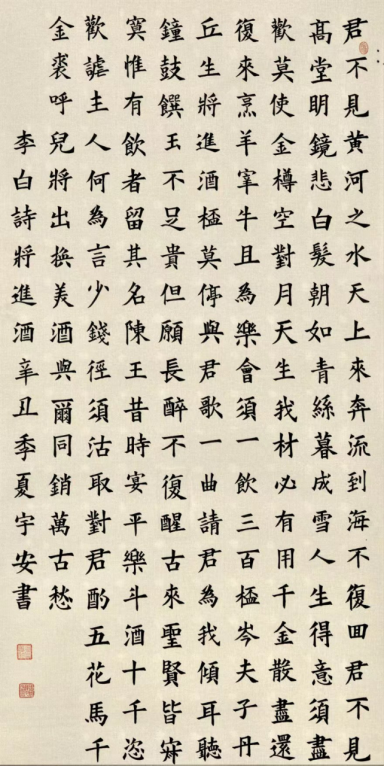 君不見黃河之水天上來奔流到海不復囬君不見
髙堂朙鏡悲白髮朝如青絲暮成雪人生得意須盡
歡莫使金樽空對月天生我材必有用千金散盡還
復來烹羊宰牛且為樂會須一飲三百桮岑夫子丹
丘生將進酒桮莫停與君歌一曲請君為我傾耳聽
鐘鼓饌玉不足貴但願長醉不復醒古來聖賢皆寂
寞惟有飲者留其名陳王昔時宴平樂斗酒十千恣
歡謔主人何為言少錢徑須沽取對君酌五花馬千
金裘呼兒將出換美酒與爾同銷萬古愁
李白詩將進酒辛丑季夏宇安書